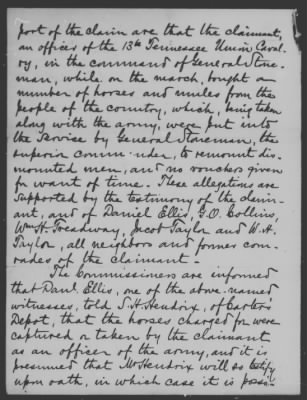 port of the claim are that the claimant,
an officer of the 13th Tennessee Union Caval-
ry, in the command of General Stone-
man, while on the march, bought a
number of horses and mules from the
people of the country, which, being taken
along with the army, were put into
the service by General Stoneman, the
superior commander, to remount dis-
mounted men, and no vouchers given
for want of time. These allegations are
supported by the testimony of the claim-
ant, and of Daniel Ellis, G.O. Collins,
Wm H. Treadway, Jacob Taylor and W.H.
Taylor, all neighbors and former com-
rades of the claimant.
The Commissioners are informed
that Danl. Ellis, one of the above-named
witnesses, told S.H. Hendrix, of Carter's
Depot, that the horses charged for were
captured or taken by the claimant
as an officer of the army, and it is
presumed that Mr Hendrix will so testify
upon oath, in which case it is possi-